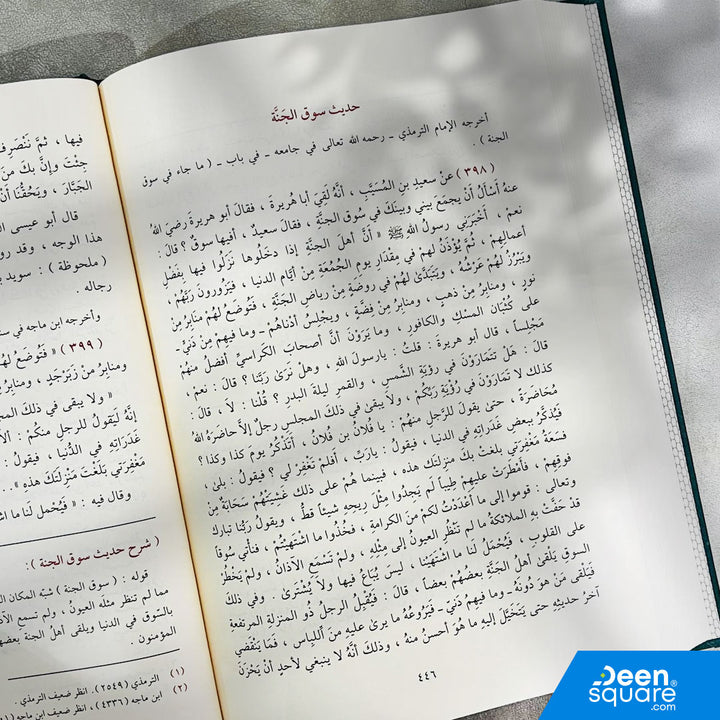 حديث سوق الجَنَّة
أخرجه الإمام الترمذي ـ رحمه الله تعالى في جامعه ـ في باب ـ ( ما جاء في سوق
الجنة ) .
( ٣٩٨ ) عنْ سعيدِ بنِ المُسَيَّبِ ، أنَّهُ لَقِيَ أبا هُريرةَ ، فقالَ أبو هريرةَ رَضِيَ اللهُ
عنهُ أسْأَلُ أنْ يجمَعَ بيني وبينَكَ في سُوقِ الجنَّةِ ، فقالَ سعيدٌ ، أفيها سوقٌ ؟ قالَ :
نعم ، أَخْبَرَني رسولُ اللهِ ﷺ « أَنَّ أهلَ الجنَّةِ إذا دخَلُوها نَزَلُوا فيها بفَضْلِ
أعمالِهِمْ ، ثُمَّ يُؤْذَنُ لهمْ في مِقْدارِ يومِ الجُمُعَةِ مِنْ أيَّامِ الدنيا ، فيَزُورونَ ربَّهُمْ ،
ويَبْرُزُ لهُمْ عَرْشُهُ ، ويَتَبَدَّىٰ لهُمْ في روضَةٍ مِنْ رياضِ الجَنَّةِ ، فَتُوضَعُ لهُمْ مَنابِرُ مِنْ
نورٍ ، ومنابِرُ مِنْ ذهبٍ ، ومنابِرُ مِنْ فِضَّةٍ ، ويجْلِسُ أدْناهُمْ ـ وما فيهِمْ مِنْ دَنِيٍّ ـ
على كُثْبَانِ المسْكِ والكافُورِ ، وما يرَوْنَ أنَّ أصحابَ الكَراسِيِّ أفضَلُ منهُمْ
مَجْلِساً ، قال أبو هريرةَ : قلتُ : يارسولَ اللهِ ، وهلْ نَرَىٰ رَبَّنَا ؟ قالَ : نعم ،
قالَ : هَلْ تَتَمَارَوْنَ في رؤيَةِ الشَّمْسِ ، والقمَرِ ليلةَ البدْرِ ؟ قُلْنا : لاَ ، قالَ :
كذلك لا تَمَارَوْنَ في رُؤْيَةِ ربِّكُمْ ، ولاَ يبقىٰ في ذلكَ المجلسِ رجلٌ إلاَّ حاضَرَهُ اللهُ
مُحَاضَرَةً ، حتىٰ يقولَ للرَّجلِ منهُمْ : يا فُلانُ بن فُلانٍ ، أَتَذْكُرُ يومَ كذا وكذا ؟
فيُذَكِّرُ ببعضِ غَدَراتِهِ في الدنيا ، فيقولُ : ياربِّ ، أفلمْ تغْفِرْ لي ؟ فيقولُ : بلىٰ ،
فسَعَةُ مغْفِرَتي بلَغتْ بكَ منزِلتَكَ هذه ، فبينما هُمْ على ذلكَ غشِيَتْهُمْ سَحَابَةٌ مِنْ
فوقِهِمْ ، فأمْطَرَتْ عليهِمْ طِيباً لَمْ يَجِدُوا مِثْلَ رِيحِهِ شيئاً قطُّ ، ويقولُ ربُّنا تبارك
وتعالى : قوموا إلى ما أَعْدَدْتُ لكُمْ مِنَ الكرامةِ ، فخُذُوا ما اشْتَهَيْتُمْ ، فنأتي سُوقاً
قدْ حَفَّتْ بهِ الملائكةُ ما لم تَنْظُرِ العيونُ إلى مِثلِهِ ، ولمْ تَسْمَعِ الآذانُ ، ولمْ يَخْطُرْ
على القلوبِ ، فيُحْمَلُ لنا ما اشْتَهَيْنا ، ليسَ يُبَاعُ فيها ولاَ يُشْتَرىٰ . وفي ذلكَ
السوقِ يلْقىٰ أهلُ الجَنَّةِ بعضُهُمْ بعضاً ، قالَ : فَيُقْبِلُ الرجلُ ذُو المنزِلةِ المرتفعةِ
فَيَلْقىٰ مَنْ هوَ دُونَهُ ـ وما فيهِمْ دَنِيٌّ ـ فيَرُوعُهُ ما يرىٰ عليهِ مِنَ اللِّباسِ ، فَمَا يَنْقَضِي
آخِرُ حديثِهِ حتىٰ يتَخَيَّلَ إليهِ ما هوَ أحسنُ منهُ ، وذلكَ أنَّهُ لا ينبغي لأحدٍ أنْ يَحْزَنَ
٤٤٦
فيها ، ثمَّ نَنْصَرِفُ
جِئْتَ وإنَّ بكَ منَ
الجَبَّارَ ، ويَحُقُّنا أنْ
قال أبو عيسى
هذا الوجه ، وقد روى
( ملحوظة ) : سويد
رجاله .
وأخرجه ابن ماجه في
( ٣٩٩ ) « فَتُوضَعُ لهُمْ
ومنابِرُ مِنْ زَبَرْجَدٍ ،
« ولا يبقى في ذلكَ
إنَّهُ لَيَقُولُ للرجلِ منكُمْ :
غَدَراتِهِ في الدنيا ، فيقول
مَغْفِرَتي بَلَغتَ مَنْزِلتَكَ هذه » .
وقال فيه : « فَيُحْمل لَنا ما
( شرح حديث سوق الجنة ) :
قوله : ( سوق الجنة ) شبَّه المكان
مما لم تنظر مثله العيون ، ولم تسمع
بالسّوق في الدنيا ويلقى أهلُ الجنة
المؤمنون .
(١) الترمذي (٢٥٤٩) . انظر ضعيف الترمذي .
(٢) ابن ماجه (٤٣٣٦) ، انظر ضعيف
Deen
square®
.com